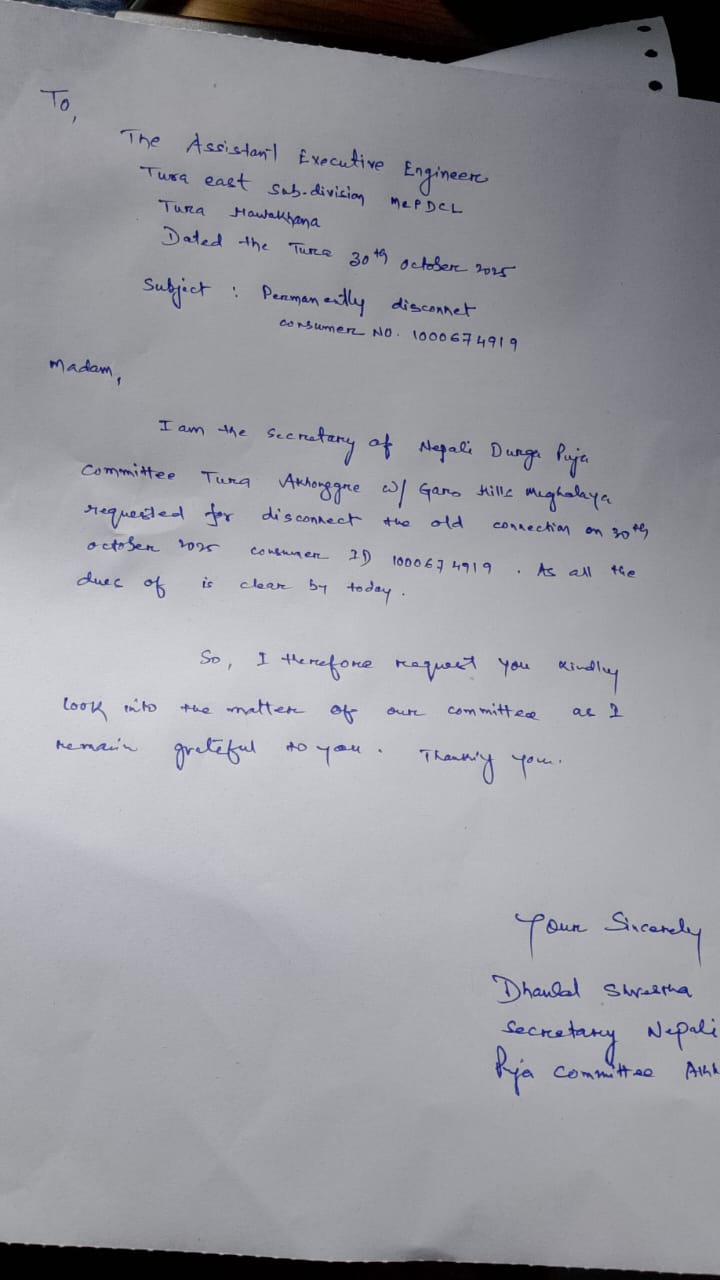 To,
The Assistant Executive Engineer
Tura east sub-division MePDCL
Tura Hawakhana
Dated the Tura 30th october 2025
Subject : Permanently disconnet
consumer NO. 1000674919
Madam,
I am the secretary of Nepali Durga Puja
Committee Tura Akhonggre w/ Garo Hills Meghalaya
requested for disconnect the old connection on 30th
october 2025 consumer ID 1000674919 . As all the
dues of is clear by today.
So, I therefore request you kindly
look into the matter of our committee as I
remain grateful to you. Thanking you.
Your Sincerely
Shrestha
Secretary Nepali
Puja Committee